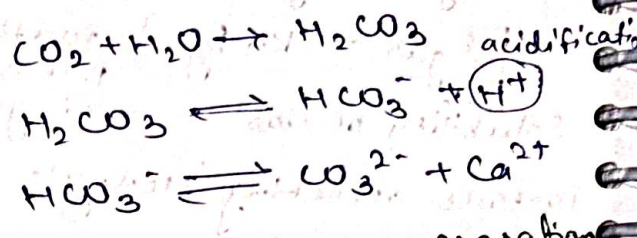 CO₂ + H₂O → H₂CO₃ acidificati
H₂CO₃ ⇌ HCO₃⁻ + H⁺
HCO₃⁻ ⇌ CO₃²⁻ + Ca²⁺